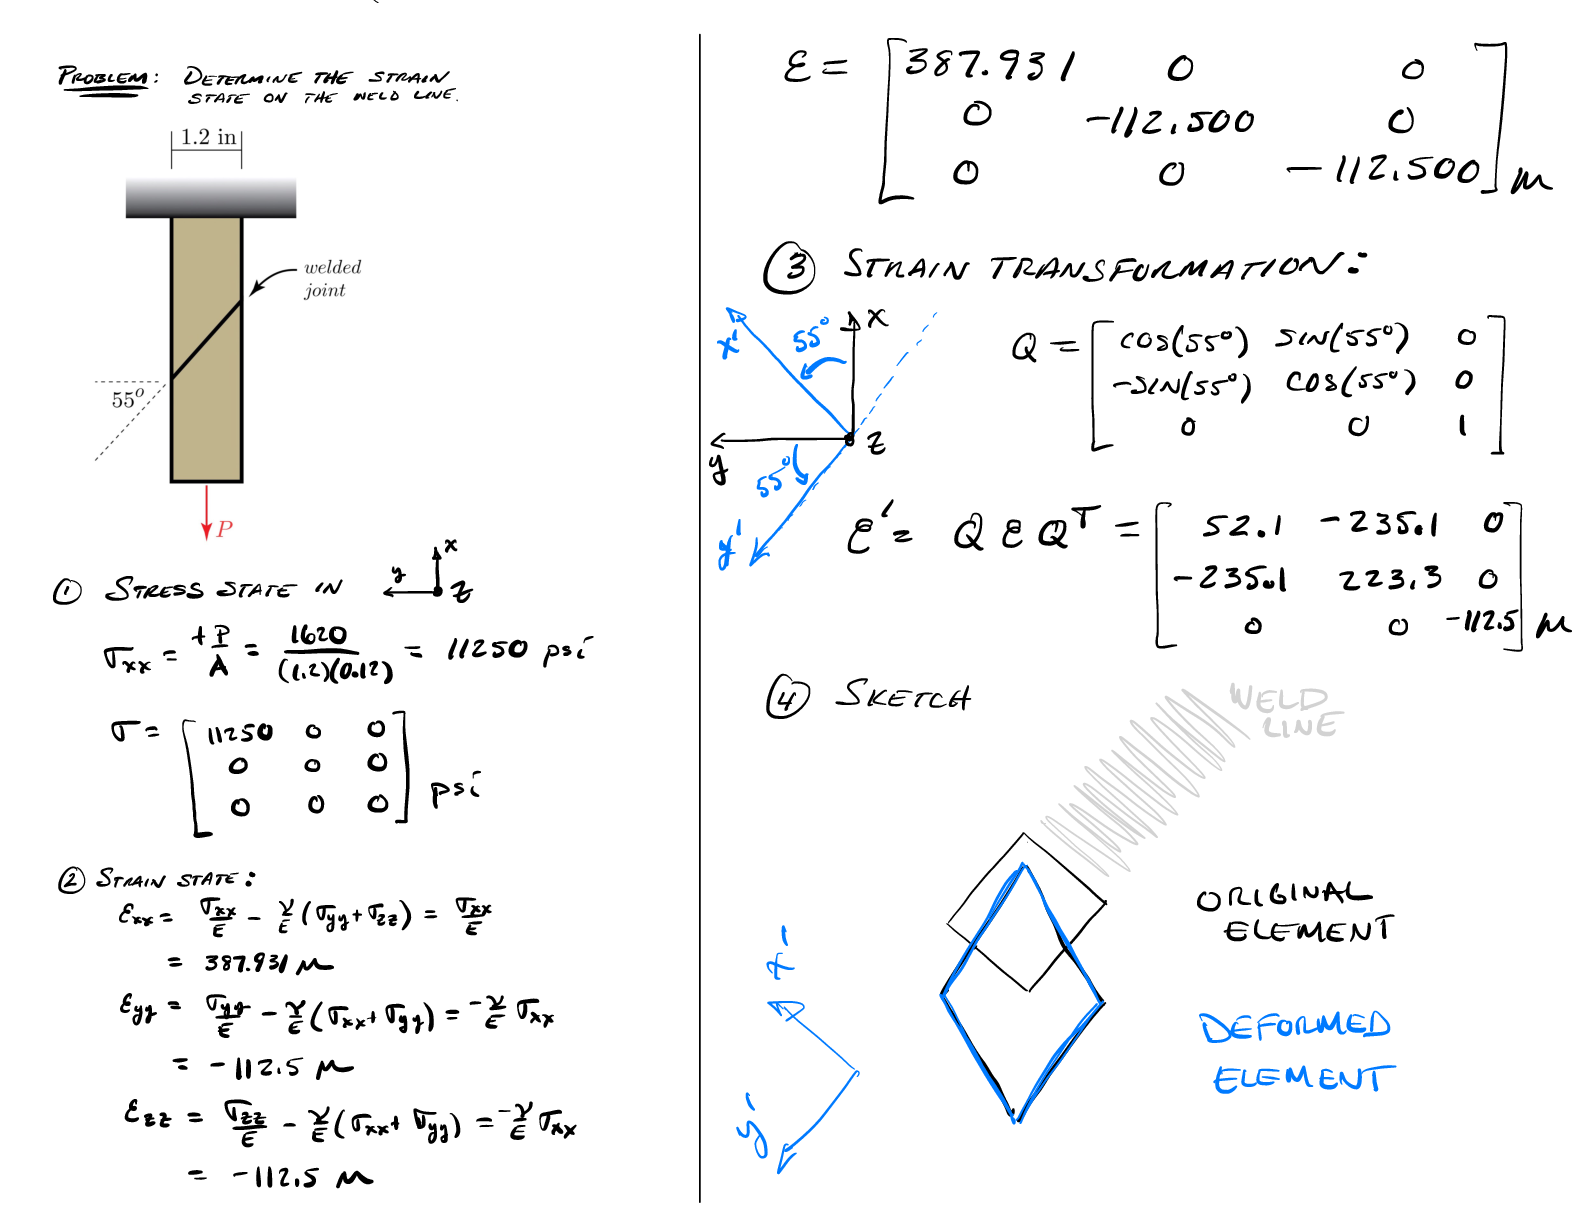 PROBLEM: DETERMINE THE STRAIN
STATE ON THE WELD LINE.
1.2 in
welded
joint
55°
P
① STRESS STATE IN y x z
σxx = +P/A = 1620/(1.2)(0.12) = 11250 psi
σ = [11250 0 0
0 0 0
0 0 0] psi
② STRAIN STATE:
εxx = σxx/E - ν/E (σyy + σzz) = σxx/E
= 387.931 μ
εyy = σyy/E - ν/E (σxx + σyy) = -ν/E σxx
= -112.5 μ
εzz = σzz/E - ν/E (σxx + σyy) = -ν/E σxx
= -112.5 μ
ε = [387.931 0 0
0 -112.500 0
0 0 -112.500] μ
③ STRAIN TRANSFORMATION:
x' 55° x
y z
55°
y'
Q = [cos(55°) sin(55°) 0
-sin(55°) cos(55°) 0
0 0 1]
ε' = Q ε Qᵀ = [52.1 -235.1 0
-235.1 223.3 0
0 0 -112.5] μ
④ SKETCH
WELD
LINE
x'
y'
ORIGINAL
ELEMENT
DEFORMED
ELEMENT